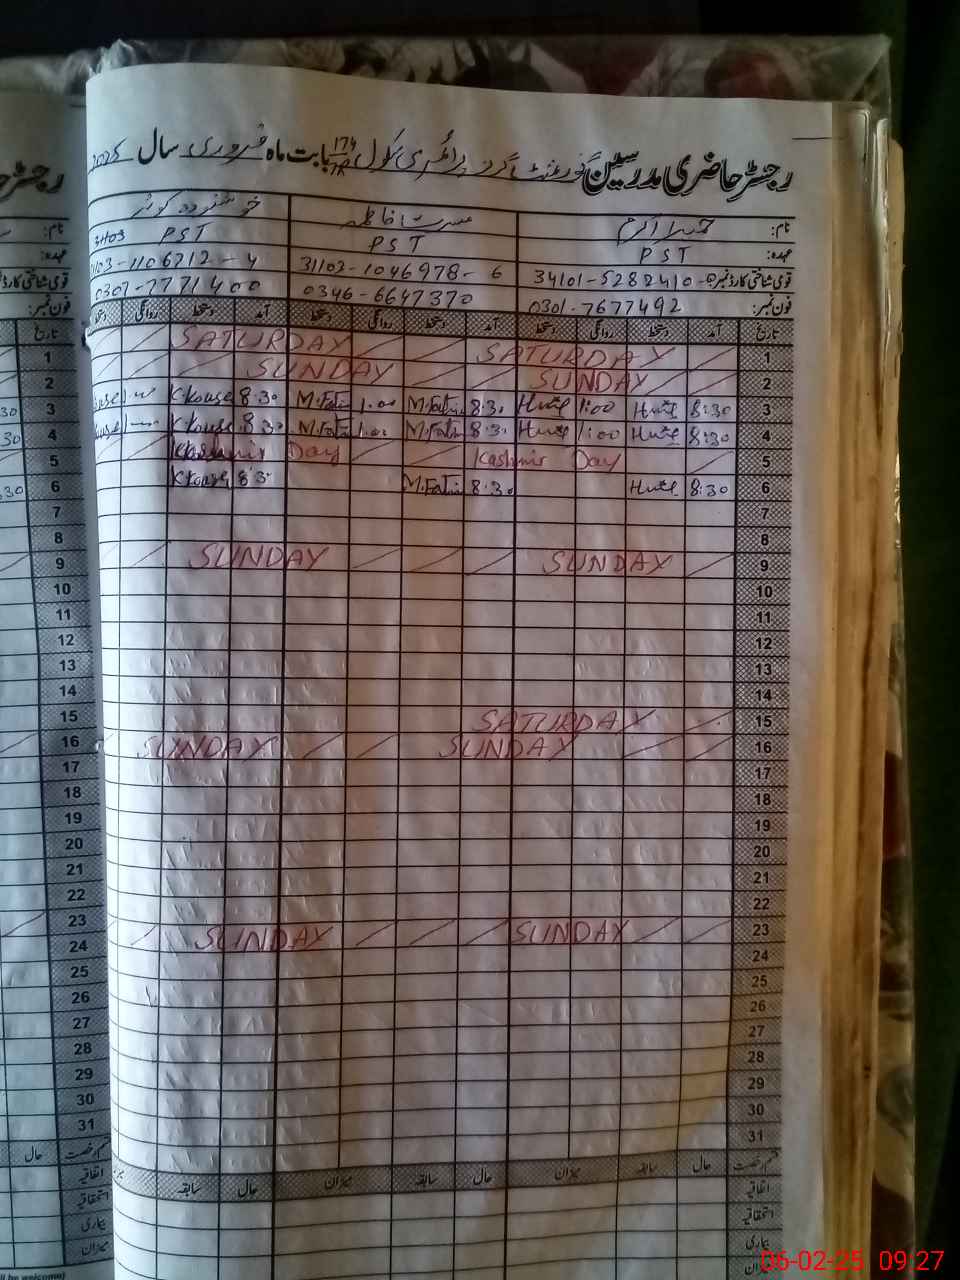 رجسٹر حاضری مدرسین گورنمنٹ گرلز پرائمری سکول 174/7R بابت ماہ فروری سال 2025
نام: حمیرا اکرم مسرت فاطمہ خوشنودہ کوثر
عہدہ: PST PST PST
قومی شناختی کارڈ نمبر 34101-5282410-9 31103-1046978-6 31103-1106712-4
فون نمبر: 0301-7677492 0346-6647370 0307-7771400
تاریخ آمد دستخط روانگی دستخط آمد دستخط روانگی دستخط آمد دستخط روانگی
1 SATURDAY SATURDAY
2 SUNDAY SUNDAY
3 8:30 1:00 8:30 M.Fatima 1:00 M.Fatima 8:30 K Kouser
4 8:30 1:00 8:30 M.Fatima 1:00 M.Fatima 8:30 K Kouser
5 Kashmir Day Kashmir Day
6 8:30 8:30 M.Fatima 8:30 K Kouser
7
8
9 SUNDAY SUNDAY
10
11
12
13
14
15 SATURDAY
16 SUNDAY SUNDAY
17
18
19
20
21
22
23 SUNDAY SUNDAY
24
25
26
27
28
29
30
31
قسم رخصت حال سابقہ میزان حال سابقہ میزان حال سابقہ
اتفاقیہ
استحقاقیہ
بیماری
میزان
06-02-25 09:27